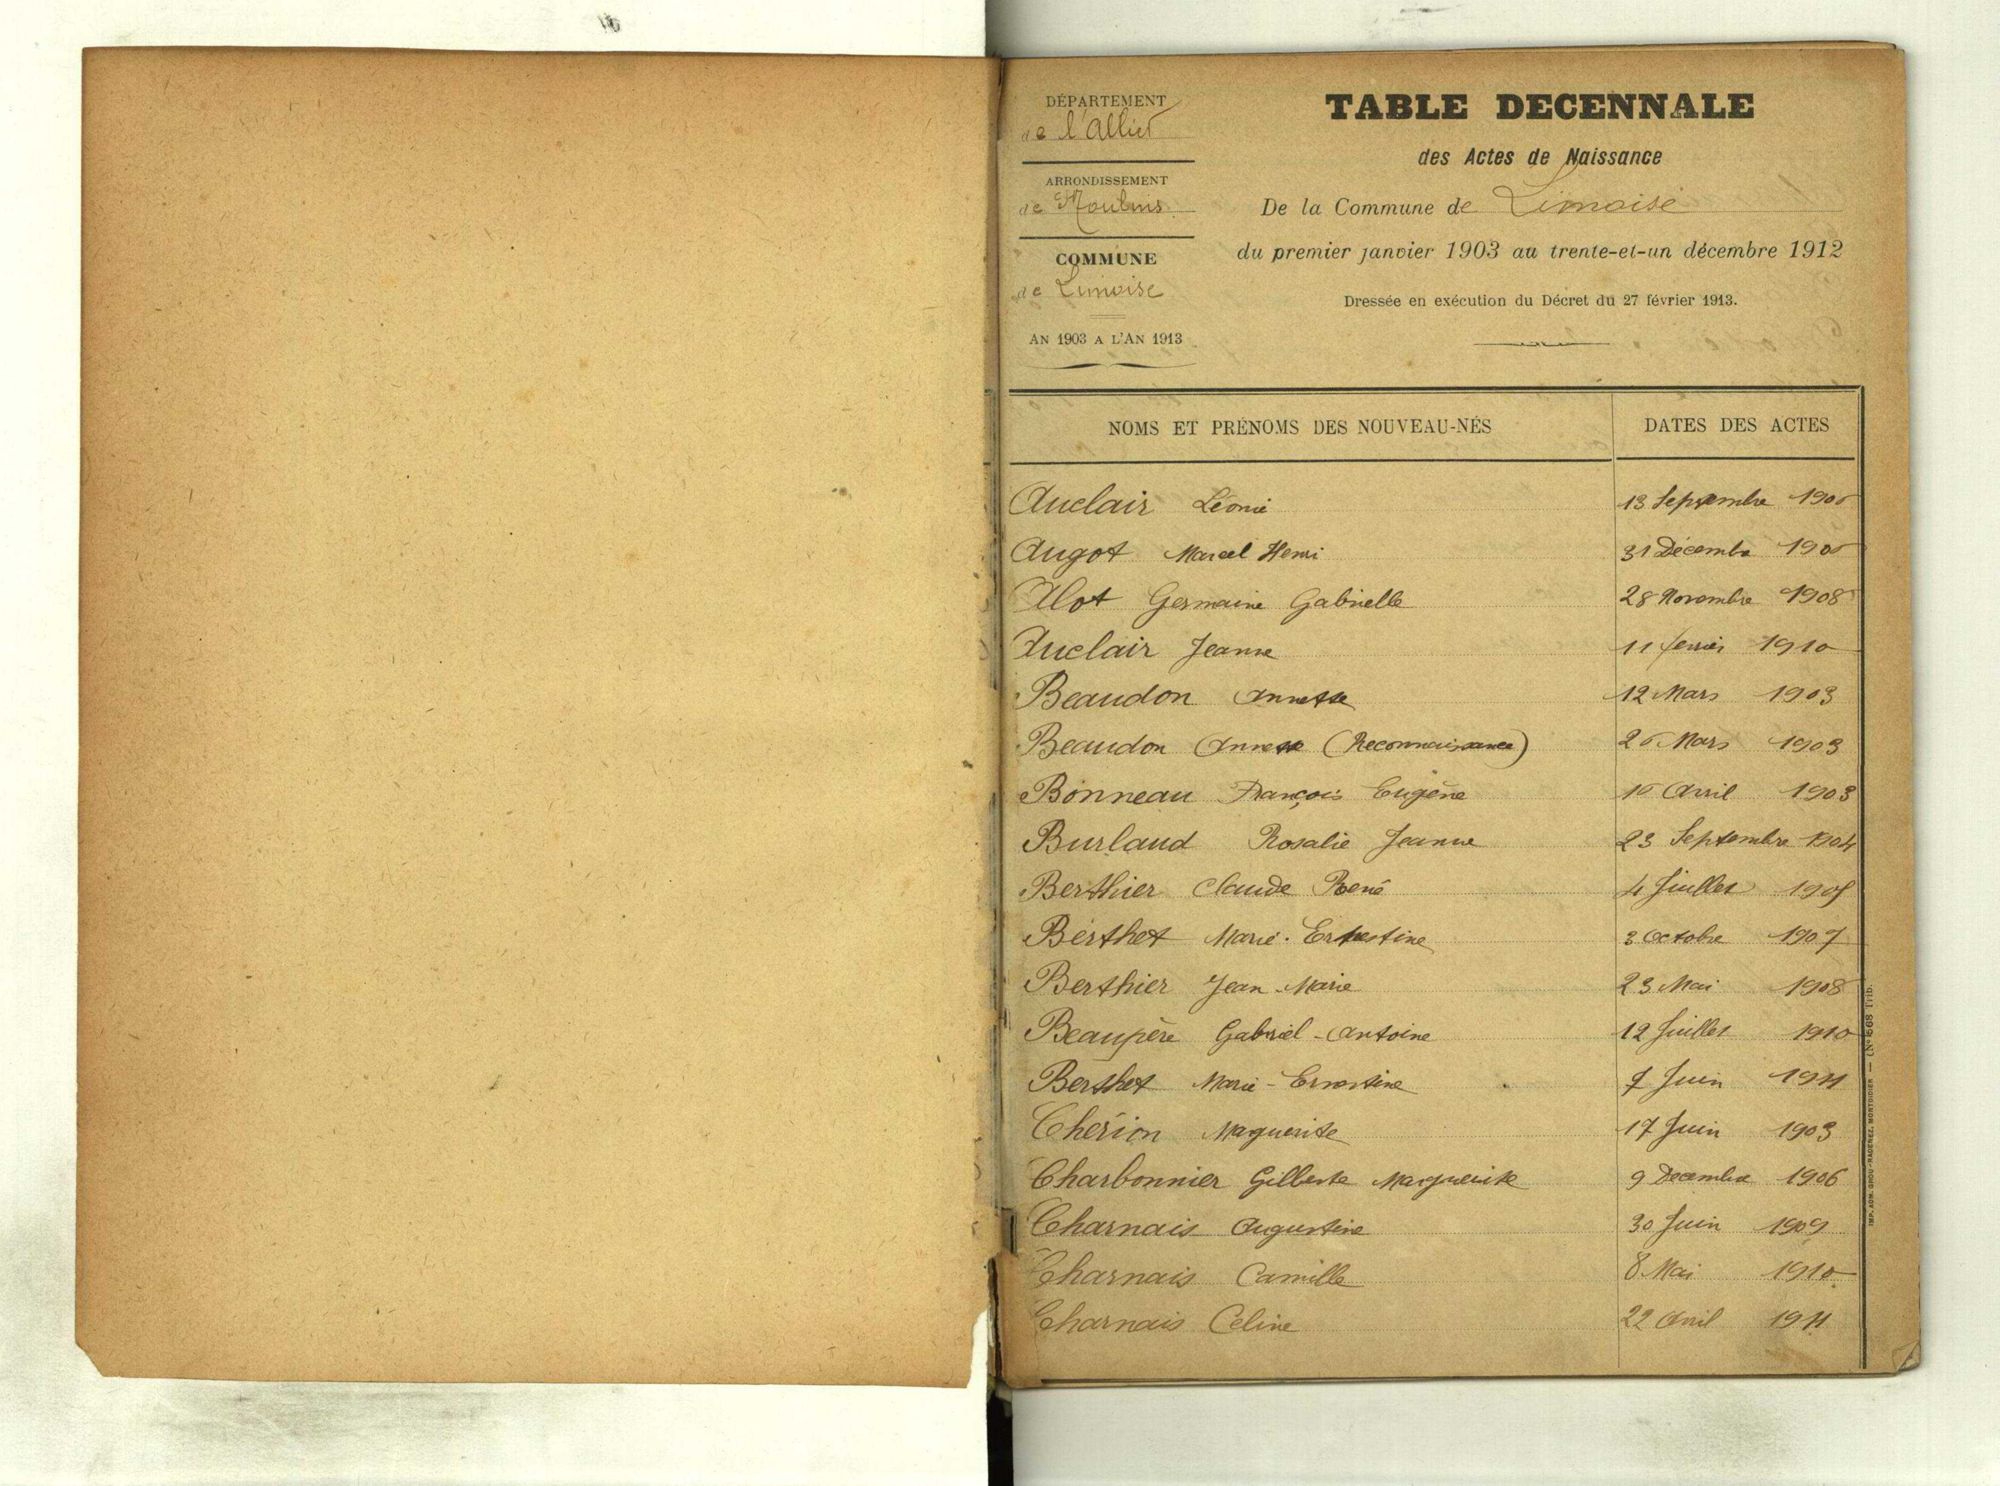 DÉPARTEMENT
de l'Allier
ARRONDISSEMENT
de Moulins
COMMUNE
de Limoise
AN 1903 A L'AN 1913
TABLE DECENNALE
des Actes de Naissance
De la Commune de Limoise
du premier janvier 1903 au trente-et-un décembre 1912
Dressée en exécution du Décret du 27 février 1913.
NOMS ET PRÉNOMS DES NOUVEAU-NÉS DATES DES ACTES
Auclair Léonie 13 Septembre
Augot Marcel Henri 31 Décembre
Alot Germaine Gabrielle 28 Novembre 1908
Auclair Jeanne 11 février 1910
Beaudon Annette 12 Mars 1903
Beaudon Annette (Reconnaissance) Mars 1903
Bonneau François Eugène Avril 1903
Burlaud Rosalie Jeanne 23 Septembre 1904
Berthier Claude René 4 Juillet
Berthet Marie-Ernestine 3 Octobre 1907
Berthier Jean-Marie 23 Mai 1908
Beaupère Gabriel-Antoine 12 Juillet 1910
Berthet Marie-Ernestine 7 Juin 1911
Chérion Marguerite 17 Juin 1903
Charbonnier Gilberte Marguerite 9 Décembre 1906
Charnais Augustine 30 Juin 1909
Charnais Camille 8 Mai 1910
Charnais Céline 22 Avril 1911
IMP. ADM. GROU-RADENEZ, MONTDIDIER — (N° 668 Trib.